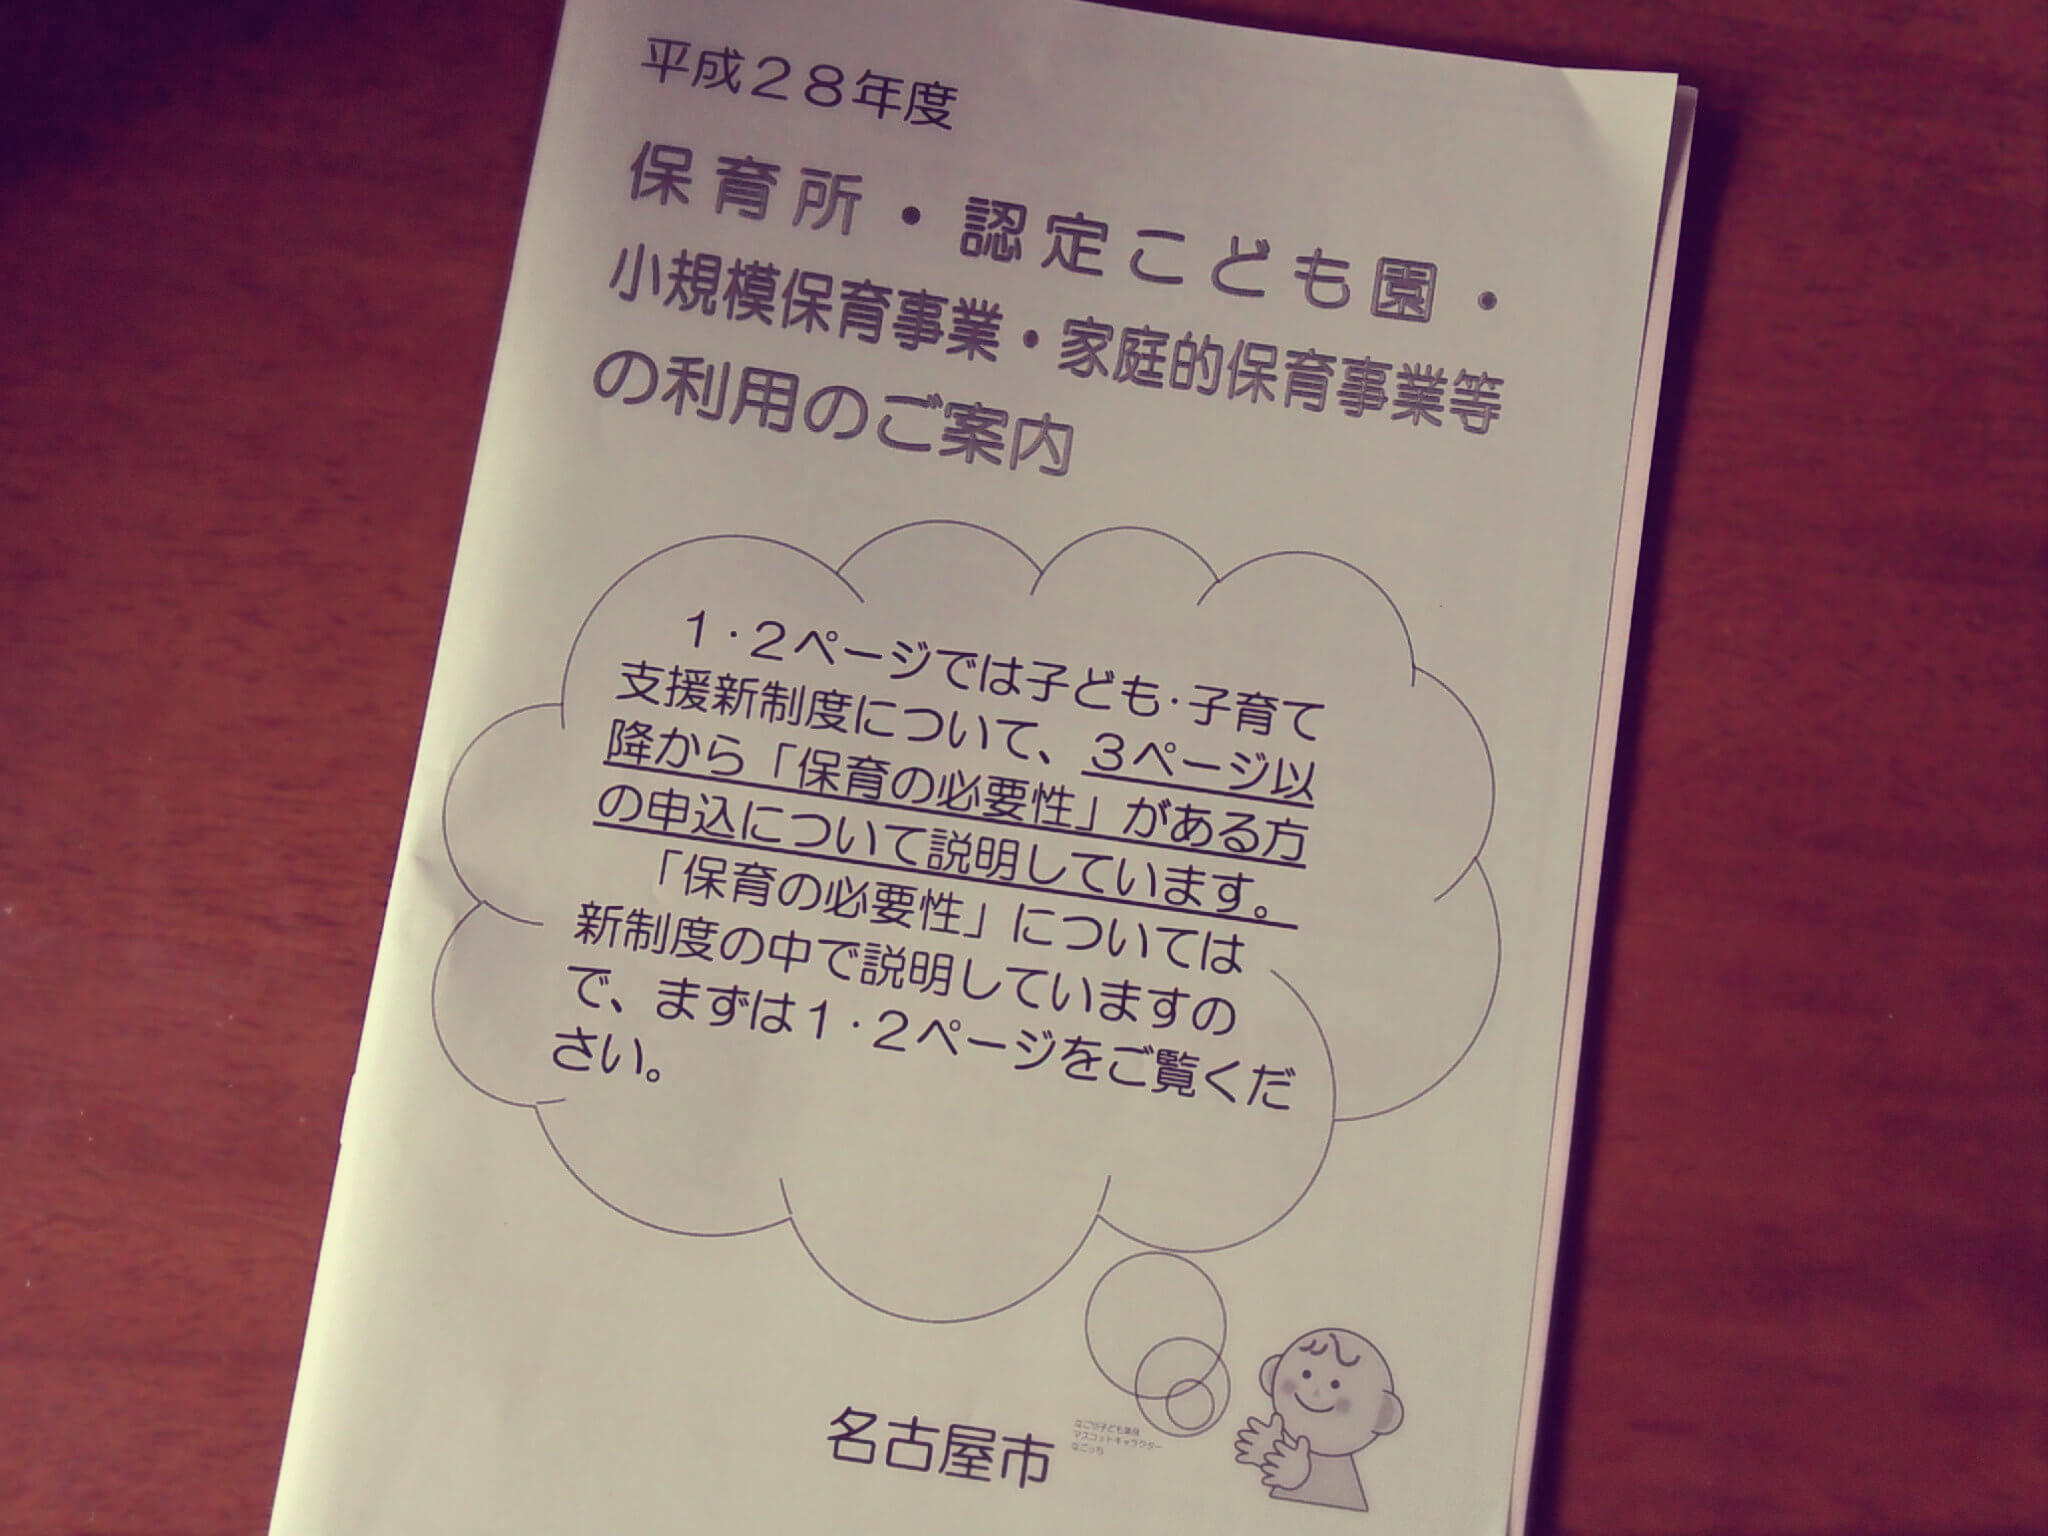 平成２８年度
保育所・認定こども園・
小規模保育事業・家庭的保育事業等
の利用のご案内
１・２ページでは子ども・子育て
支援新制度について、３ページ以
降から「保育の必要性」がある方
の申込について説明しています。
「保育の必要性」については
新制度の中で説明していますの
で、まずは１・２ページをご覧くだ
さい。
名古屋市
マスコットキャラクター
なごっち